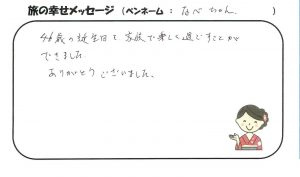 旅の幸せメッセージ（ペンネーム：なべちゃん）
44歳の誕生日を家族で楽しく過ごすことが
できました
ありがとうございました.